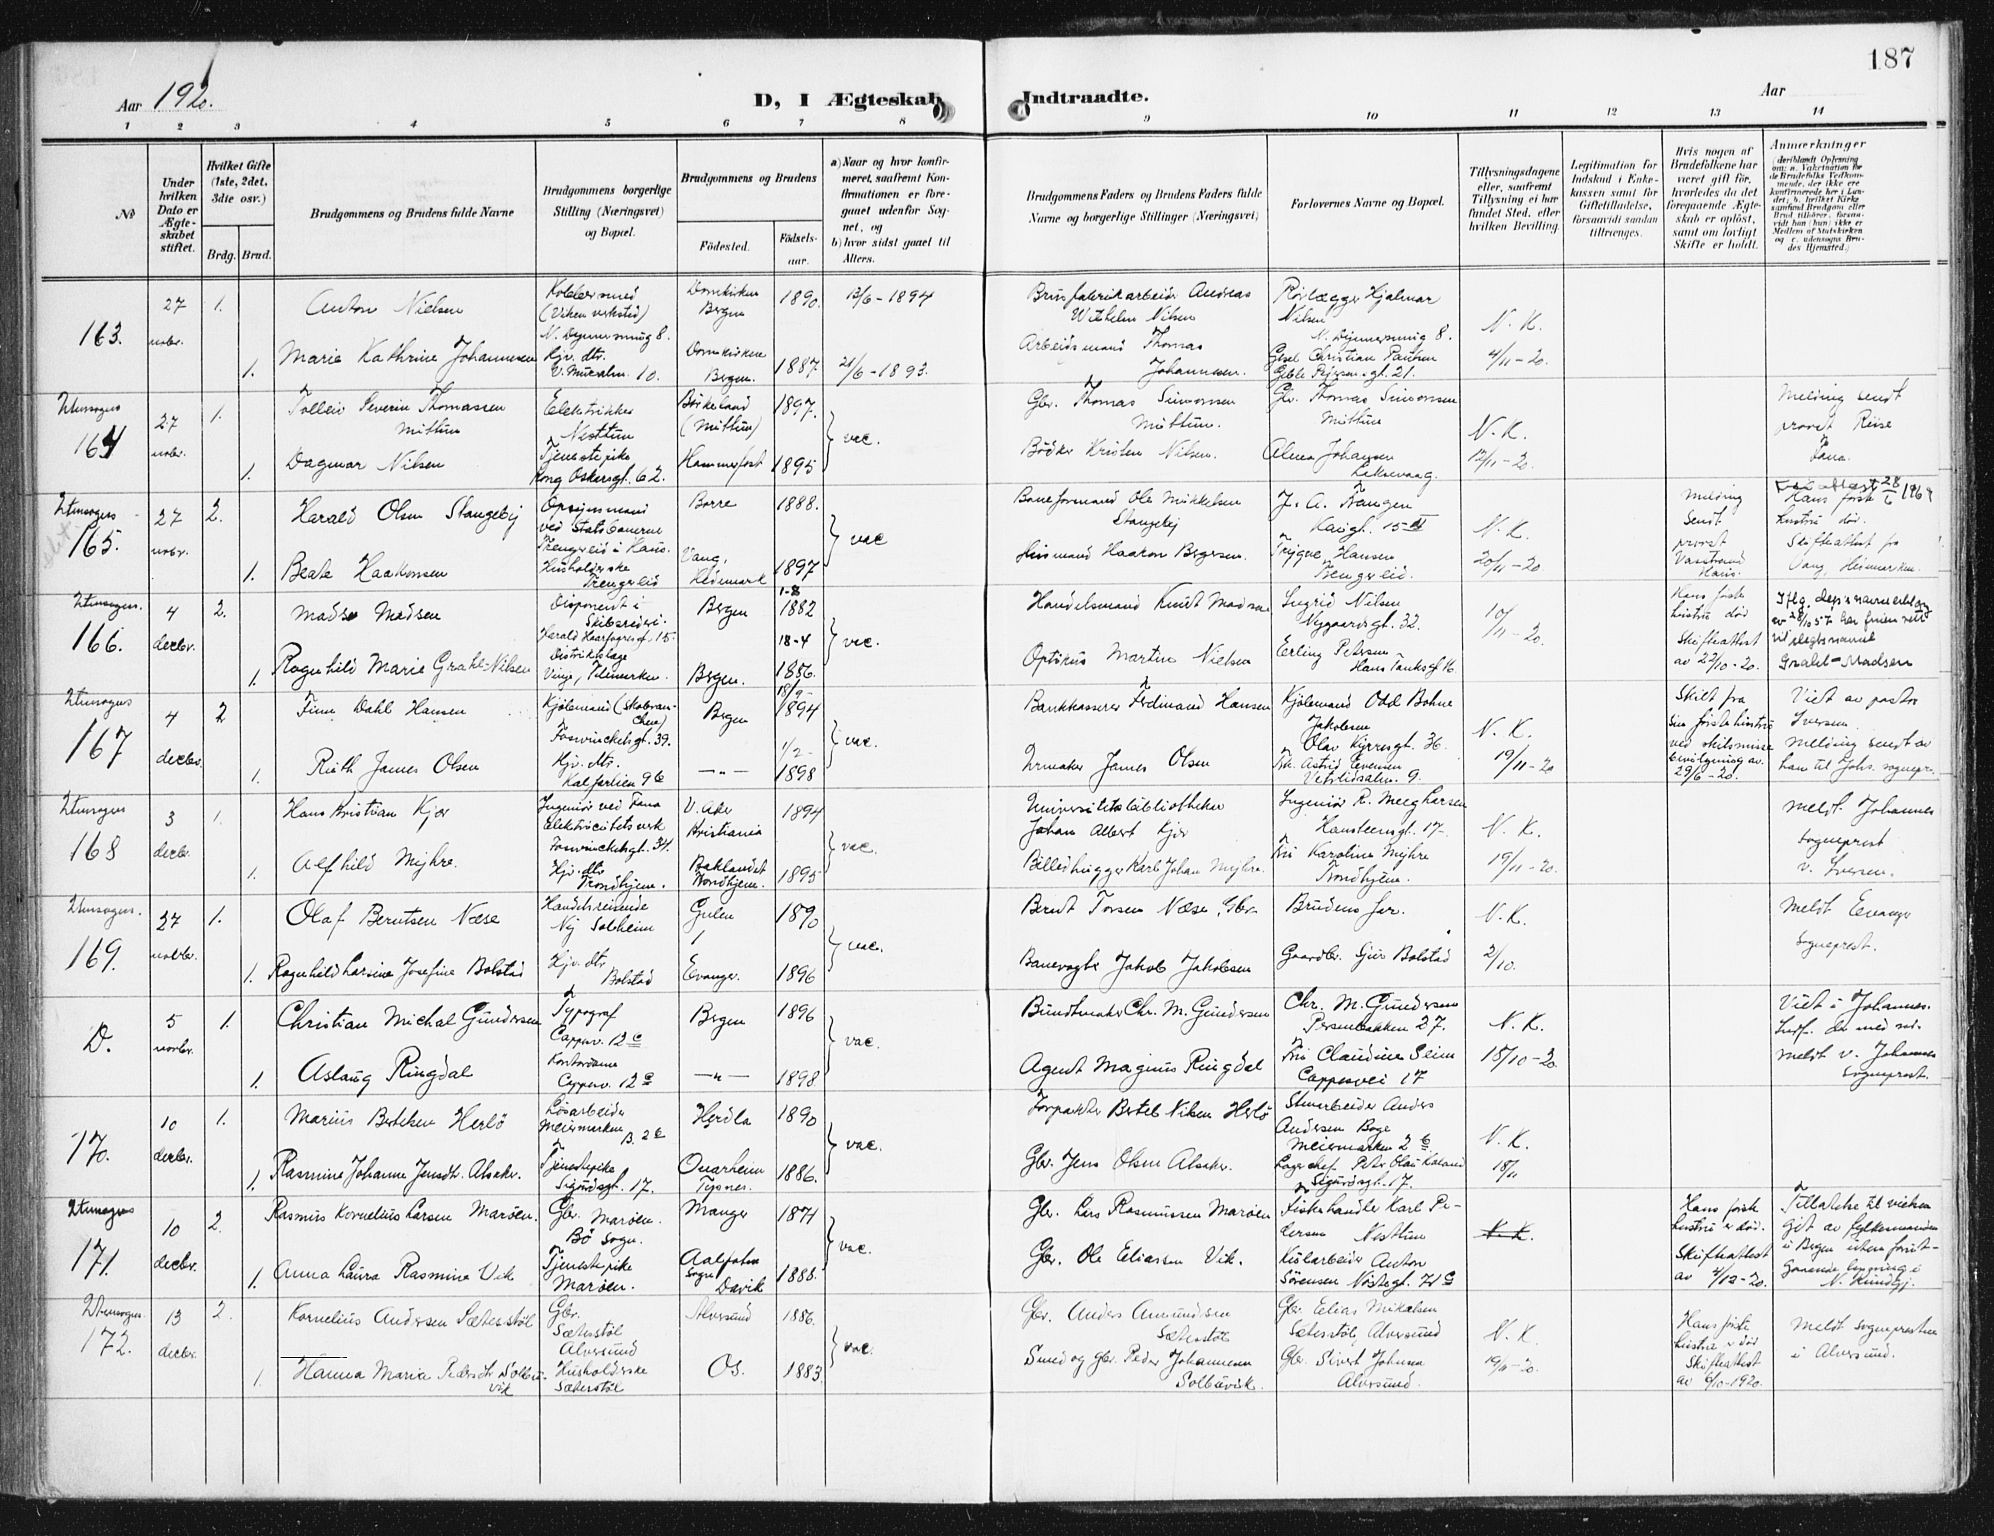 187
Aar 1920.
D, I Ægteskab Indtraadte.
Aar
1 2 3 4 5 6 7 8 9 10 11 12 13 14
No
Under hvilken Dato er Ægteskabet stiftet.
Hvilket Gifte (1ste, 2det, 3die osv.)
Brdg. Brud.
Brudgommens og Brudens fulde Navne
Brudgommens borgerlige Stilling (Næringsvei) og Bopæl.
Brudgommens og Brudens
Födested.
Födselsaar.
a) Naar og hvor konfirmeret, saafremt Konfirmationen er foregaaet udenfor Sognet, og
b) hvor sidst gaaet til Alters.
Brudgommens Faders og Brudens Faders fulde Navne og borgerlige Stillinger (Næringsvei)
Forlovernes Navne og Bopæl.
Tillysningsdagene eller, saafremt Tillysning ei har fundet Sted, efter hvilken Bevilling.
Legitimation for Indskud i Enkekassen samt for Giftetilladelse, forsaavidt saadan tiltrænges.
Hvis nogen af Brudefolkene har været gift før, hvorledes da det foregaaende Ægteskab er opløst, samt om lovligt Skifte er holdt.
Anmærkninger
(deriblandt Oplysning om: a. Vakcination for de Brudefolks Vedkommende, der ikke ere konfirmerede her i Landet; b. hvilket Kirkesamfund Brudgom eller Brud tilhører, forsaavidt han (hun) ikke er Medlem af Statskirken og c. udensogns Brudes Hjemsted.)
163.
27 novbr.
1.
Anton Nielsen
Koldersmed
(Viken verksted)
Domkirken
Bergen
1890.
13/6 - 1894
Andreas
Wilhelm Nilsen
Rørlægger Hjalmar
Nilsen
N. K.
4/11 - 20.
1.
Marie Kathrine Johannesen
Hjv. dtr.
V. Muralm. 10.
Domkirken
Bergen.
1887
21/6 - 1893.
Arbeidsmand Thomas
Johannesen.
Christian Paulsen
164
27 novbr.
1.
Tolleiv Severin Thomassen
Midttun
Elektriker
Nesttun
Birkeland
(Midttun)
1897.
vac.
Gbr. Thomas Simonsen
Midttun.
Gbr. Thomas Simonsen
Midttun
N. K.
12/11 - 20.
Melding sendt
provst Riise
Fana.
1.
Dagmar Nilsen
Tjenestepike
Kong Oskarsgt. 62.
Hammerfest
1895
Bödker Kristen Nilsen.
Alma Johansen
Laksevaag.
Utensogns
165.
27 novbr.
2.
Harald Olsen Stangeby
Opsynsmand
ved Statsbanerne
Trengereid i Haus.
Borre
1888.
vac
Baneformand Ole Mikkelsen
Stangeby
J. A. Trengen
N. K.
20/11 - 20
Melding
sendt
provst
Haus.
Hans første
hustru død.
Skifteattest fra
Vang, Hedmarken.
1.
Beate Haakonsen
Husholderske
Trengereid
Vang,
Hedemark
1897
Husmand Haaron Bergersen.
Trygve Hansen
Trengereid.
Utensogns.
166.
4 decbr.
2.
Madse Madsen
Disponent i
Skibsrederi.
Harald Haarfagresgt. 15.
Bergen
1-8
1882
vac.
Handelsmand Knut Madsen
Ingrid Nilsen
Nygaardsgt. 32.
10/11 - 20.
Hans første
hustru død
Skifteattest
av 27/10 - 20.
til slegtsnavnet
Grahl-Madsen
1.
Ragnhild Marie Grahl-Nilsen
Distriktslæge
Vinje, Telemarken.
Bergen.
18-4
1886.
Optikus Martin Nielsen
Erling Petersen
Hans Tanksgt 16.
Utensogns
167
4 decbr.
2
Finn Dahl Hansen
Kjölemand (Skobranchen)
Fosswinckelsgt. 39.
Bergen
18/9 -
1894
vac.
Bankkasserer Ferdinand Hansen
Kjölemand Odd Bohne
Jakobsen
Olav Kyrresgt. 36.
N. K.
19/11 - 20
Skilt fra
sin første hustru
ved skilsmisse
bevilgning av
29/6 - 20.
Viet av pastor
Iversen.
Melding sendt av
ham til Johs. sognepr.
1.
Ruth James Olsen
Hjv. dtr.
Kalfarlien 9b
— „ —
1/2 -
1898
Urmaker James Olsen
Frk. Astrid Evensen
Vetrlidsalm. 9.
Utensogns
168
3 decbr.
1.
Hans Kristian Kjær
Ingeniør ved Fana
elektricitetsverk
Fosswinckelsgt. 34.
V. Aker
Kristiania
1894
vac.
Universitetsbibliotheker
Johan Albert Kjær
Ingeniör R. Meeg Larsen
Hansteensgt. 17.
N. K.
19/11 - 20.
Meldt Johannes
sogneprest
v. Iversen.
1.
Alfhild Myhre.
Hjv. dtr
Trondhjem.
Baklandet
Trondhjem.
1895
Billedhugger Karl Johan Myhre.
Fru Karoline Myhre
Trondhjem.
Utensogns.
169.
27 novbr.
1.
Olaf Berntsen Næse
Handelsreisende
Ny Solheim
Gulen
1890
vac.
Bernt Torsen Næse, Gbr.
Brudens far.
N. K.
2/10.
Meldt Evanger
sogneprest.
1.
Ragnhild Larsine Josefine Bolstad
Hjv. dtr
Bolstad
Evanger.
1896
Banevogte Jakob Jakobsen
Gaardbr. Gjur Bolstad
D.
5 novbr.
1.
Christian Michal Gundersen
Typograf
Cappev. 12c
Bergen
1896
vac.
Bundtmaker Chr. M. Gundersen
Chr. M. Gundersen
Persenbakken 27.
N. K.
15/10 - 20.
Viet i Johannes.
Indf. der med no.
meldt v. Johannes
Sogneprest.
1.
Aslaug Ringdal
Kontordame
Cappev. 12c
— „ —
1898
Agent Magnus Ringdal
Fru Claudine Seim
Cappesvei 17
170.
10 decbr.
1.
Marius Bertelsen Herlö
Løsarbeider
Meiermarken
B. 2c
Herdla
1890
vac.
Forpakter Bertel Nilsen Herlö
Stenarbeider Anders
Andersen Boge
Meiermarken 2c
N. K.
18/11
1.
Rasmine Johanne Jensdtr. Alsaker.
Tjenestepike
Sigurdsgt. 17.
Onarheim
Tysnes.
1886.
Gbr. Jens Olsen Alsaker.
Lagerchef Peter Olai Kaland
Sigurdsgt. 17.
Utensogns
171.
10 decbr.
2.
Rasmus Kornelius Larsen Marøen.
Gbr.
Marøen.
Bö Sogn.
Manger
1871
vac.
Gbr. Lars Rasmussen Marøen
Fiskehandler Karl Petersen
Nesttun
N. K.
Hans første
hustru er död.
Skifteattest
av 4/12 - 20.
Tilladelse til vielsen
git av fylkesmanden
i Bergen uten forutgaaende lysning i
N. Kundgj.
1.
Anna Laura Rasmine Vik
Tjenestepike
Marøen.
Aalfoten
Sogn
Davik
1888.
Gbr. Ole Eliassen Vik.
Kularbeider Anton
Sørensen Nøstegt. 71c
Utensogns.
172.
13 decbr.
2.
Kornelius Andersen Sætersstöl
Gbr.
Sætersstöl
Alversund
Alversund
1886.
vac.
Gbr. Anders Amundsen
Sætersstöl
Gbr. Elias Mikalsen
Sætersstöl, Alversund
N. K.
19/11 - 20.
Hans første
hustru er död
Skifteattest
av 6/10 - 1920.
Meldt sogneprest
i Alversund.
1.
Hanna Maria Pedersdtr Solbu
vik
Husholderske
Sætersstöl
Os.
1883.
Smed og gbr. Peder Johannesen
Solbuvik.
Gbr. Sivert Johnsen
Alversund.